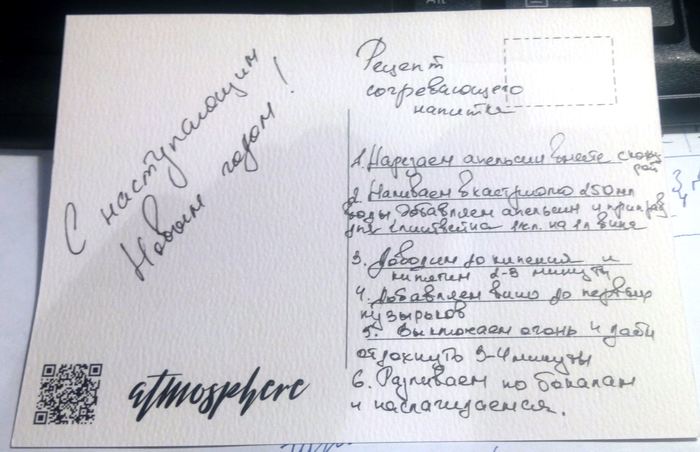 С наступающим
Новым годом!
Рецепт
согревающего
напитка
1. Нарезаем апельсин вместе с кожу
рой
2. Наливаем в кастрюлю 250 мл
воды добавляем апельсин и приправ
для глинтвейна 1 кл. на 1 л вина
3. Доводим до кипения и
кипятим 2-3 минуты
4. Добавляем вино до первых
пузырьков
5. Выключаем огонь и даём
отдохнуть 3-4 минуты
6. Разливаем по бокалам
и наслаждаемся.
atmosphere